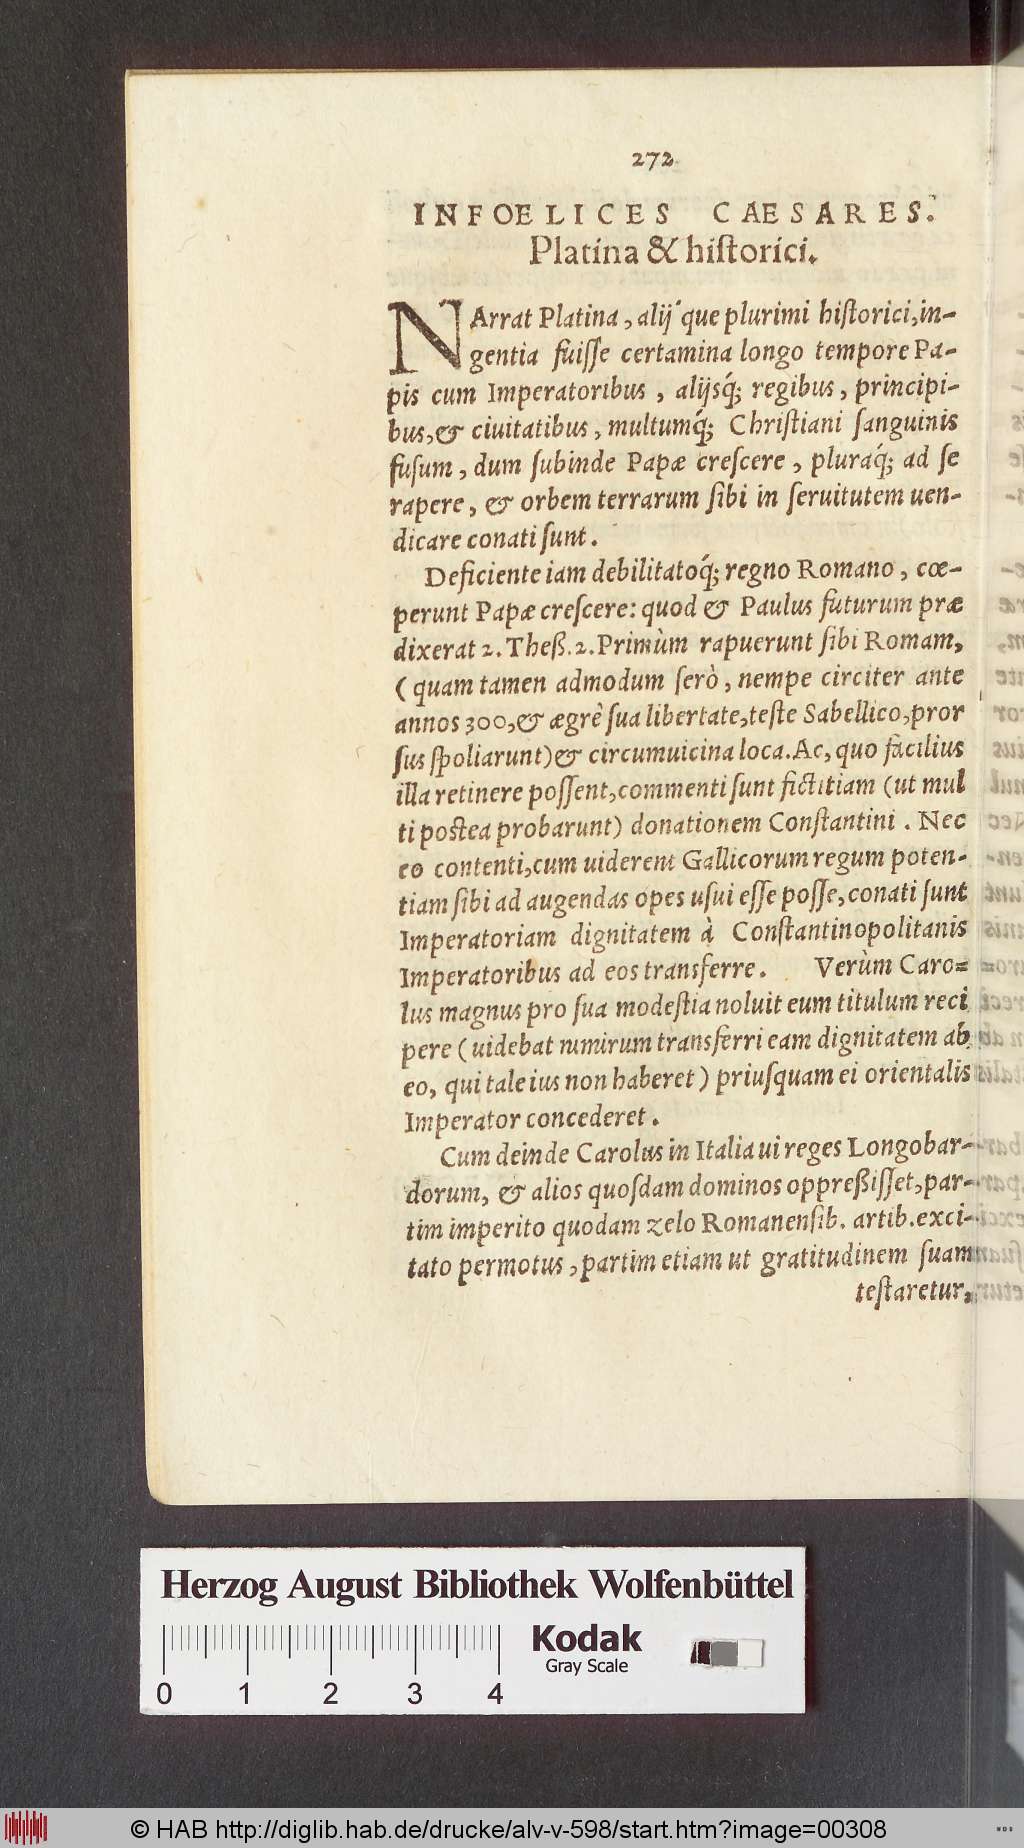 272
INFOELICES CAESARES.
Platina & historici.
NArrat Platina, alij´que plurimi historici, in-
gentia fuisse certamina longo tempore Pa-
pis cum Imperatoribus, alijsq́; regibus, principi-
bus, & ciuitatibus, multumq́; Christiani sanguinis
fusum, dum subinde Papæ crescere, pluraq́; ad se
rapere, & orbem terrarum sibi in seruitutem uen-
dicare conati sunt.
Deficiente iam debilitatoq́; regno Romano, cœ-
perunt Papæ crescere: quod & Paulus futurum præ
dixerat 2. Theß. 2. Primùm rapuerunt sibi Romam,
(quam tamen admodum serò, nempe circiter ante
annos 300, & ægrè sua libertate, teste Sabellico, pror
sus spoliarunt) & circumuicina loca. Ac, quo facilius
illa retinere possent, commenti sunt fictitiam (ut mul
ti postea probarunt) donationem Constantini. Nec
eo contenti, cum uiderent Gallicorum regum poten-
tiam sibi ad augendas opes usui esse posse, conati sunt
Imperatoriam dignitatem à Constantinopolitanis
Imperatoribus ad eos transferre. Verùm Caro=
lus magnus pro sua modestia noluit eum titulum reci
pere (uidebat nimirum transferri eam dignitatem ab
eo, qui tale ius non haberet) priusquam ei orientalis
Imperator concederet.
Cum deinde Carolus in Italia ui reges Longobar-
dorum, & alios quosdam dominos oppreßisset, par-
tim imperito quodam zelo Romanensib. artib. exci-
tato permotus, partim etiam ut gratitudinem suam
testaretur,
Herzog August Bibliothek Wolfenbüttel
Kodak
Gray Scale
0 1 2 3 4
© HAB http://diglib.hab.de/drucke/alv-v-598/start.htm?image=00308